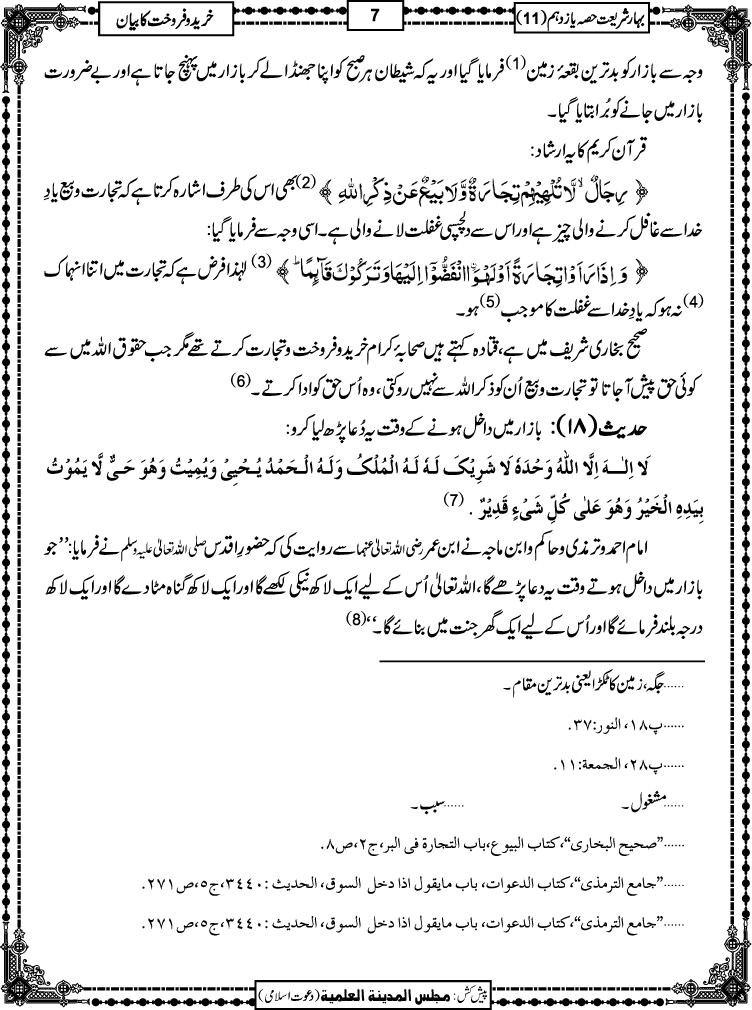 بہارِشریعت حصہ یازدہم (11)
7
خریدوفروخت کا بیان
وجہ سے بازار کو بدترین بقعۂ زمین(1) فرمایا گیا اور یہ کہ شیطان ہر صبح کو اپنا جھنڈا لے کر بازار میں پہنچ جاتا ہے اور بے ضرورت
بازار میں جانے کو بُرا بتایا گیا۔
قرآن کریم کا یہ ارشاد:
﴿ رِجَالٌ ۙ لَّا تُلْهِیْهِمْ تِجَارَةٌ وَّ لَا بَیْعٌ عَنْ ذِكْرِ اللّٰهِ ﴾(2) بھی اس کی طرف اشارہ کرتا ہے کہ تجارت و بیع یادِ
خدا سے غافل کرنے والی چیز ہے اور اس سے دلچسپی غفلت لانے والی ہے۔ اسی وجہ سے فرمایا گیا:
﴿ وَ اِذَا رَاَوْا تِجَارَةً اَوْ لَهْوَا ۟انْفَضُّوْۤا اِلَیْهَا وَ تَرَكُوْكَ قَآىٕمًا ؕ ﴾(3) لہٰذا فرض ہے کہ تجارت میں اتنا انہماک
(4) نہ ہو کہ یادِ خدا سے غفلت کا موجب(5) ہو۔
صحیح بخاری شریف میں ہے، قتادہ کہتے ہیں صحابۂ کرام خرید و فروخت و تجارت کرتے تھے مگر جب حقوق اللہ میں سے
کوئی حق پیش آجاتا تو تجارت و بیع اُن کو ذکر اللہ سے نہیں روکتی، وہ اُس حق کو ادا کرتے۔(6)
حدیث (۱۸): بازار میں داخل ہونے کے وقت یہ دُعا پڑھ لیا کرو:
لَا اِلٰـهَ اِلَّا اللّٰهُ وَحْدَهٗ لَا شَرِيْكَ لَهٗ لَهُ الْمُلْكُ وَلَهُ الْحَمْدُ يُحْيِیْ وَيُمِيْتُ وَهُوَ حَیٌّ لَّا يَمُوْتُ
بِيَدِهِ الْخَيْرُ وَهُوَ عَلٰی كُلِّ شَیْءٍ قَدِيْرٌ . (7)
امام احمد و ترمذی و حاکم و ابن ماجہ نے ابن عمر رضی اللہ تعالیٰ عنہما سے روایت کی کہ حضورِ اقدس صلی اللہ تعالیٰ علیہ وسلم نے فرمایا: ’’جو
بازار میں داخل ہوتے وقت یہ دعا پڑھے گا، اللہ تعالیٰ اُس کے لیے ایک لاکھ نیکی لکھے گا اور ایک لاکھ گناہ مٹا دے گا اور ایک لاکھ
درجہ بلند فرمائے گا اور اُس کے لیے ایک گھر جنت میں بنائے گا۔‘‘(8)
......جگہ، زمین کا ٹکڑا یعنی بدترین مقام۔
......پ۱۸، النور:۳۷.
......پ۲۸، الجمعة:۱۱.
......مشغول۔ ......سبب۔
......”صحیح البخاری“، کتاب البیوع، باب التجارة فی البر، ج۲، ص۸.
......”جامع الترمذی“، کتاب الدعوات، باب مایقول اذا دخل السوق، الحدیث: ۳۴۴۰، ج۵، ص۲۷۱.
......”جامع الترمذی“، کتاب الدعوات، باب مایقول اذا دخل السوق، الحدیث: ۳۴۴۰، ج۵، ص۲۷۱.
پیش کش: مجلس المدینة العلمیة (دعوت اسلامی)